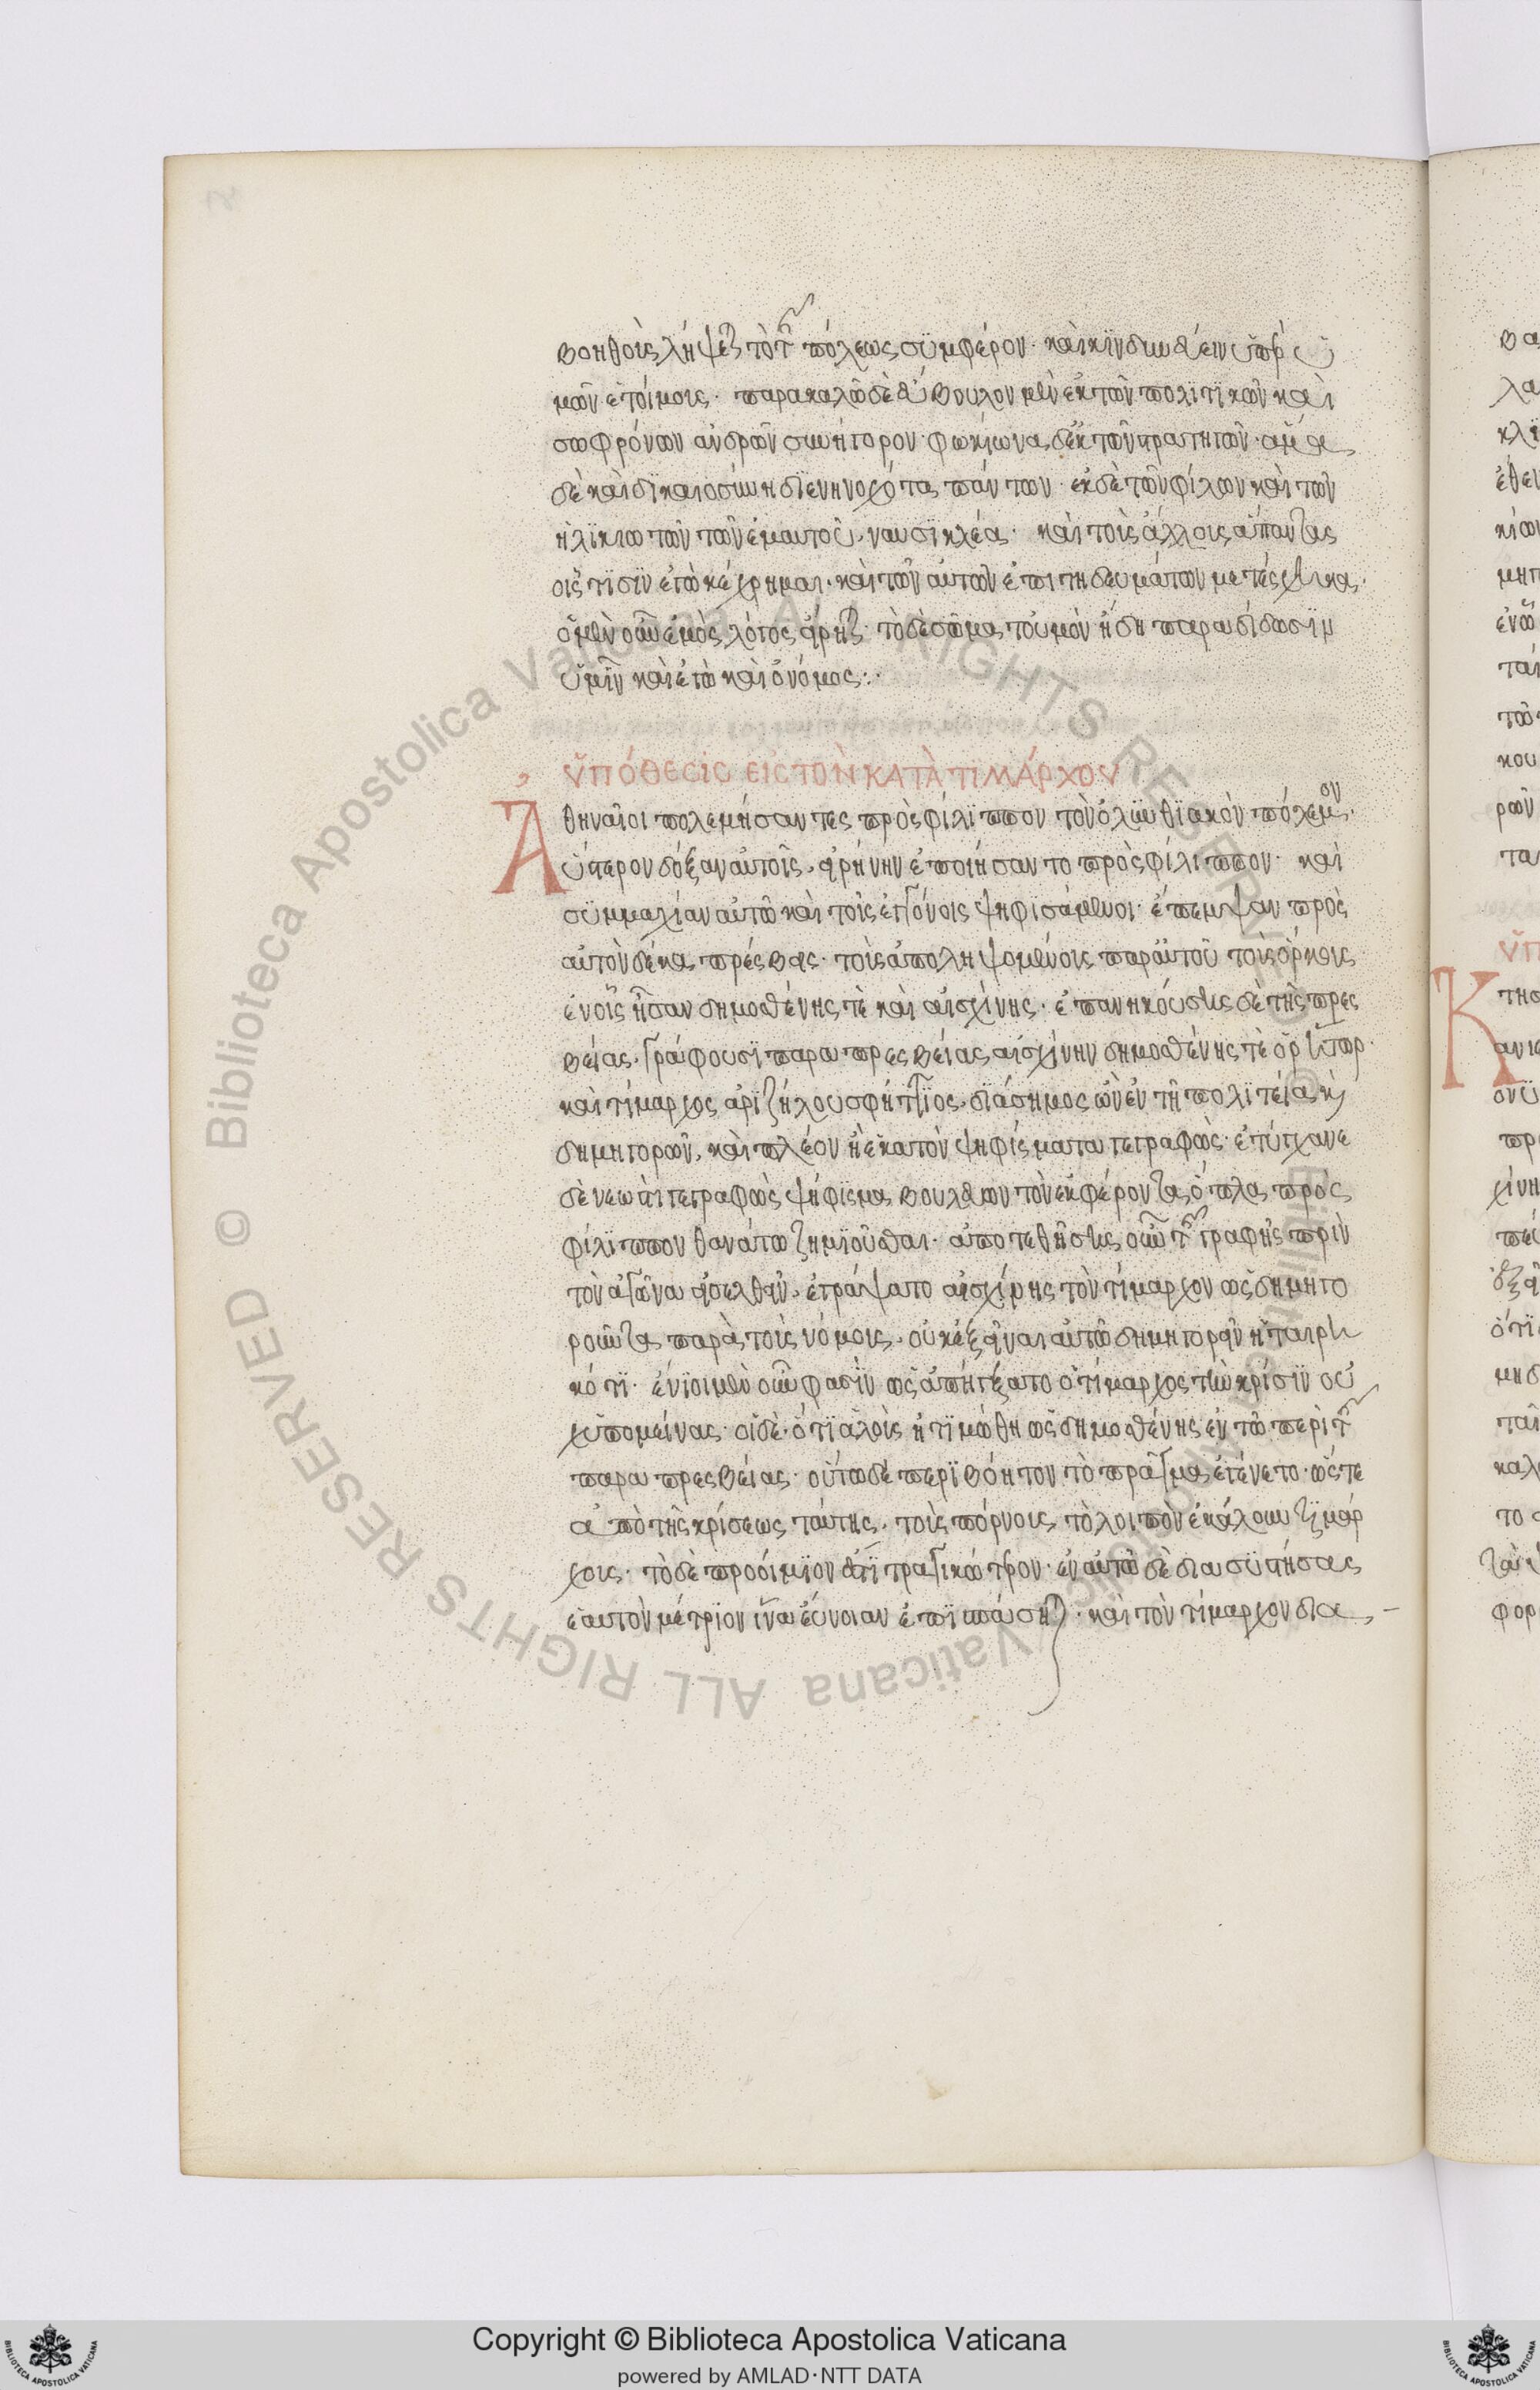 βοηθοὺς λήψεσθε τὸ τῆς πόλεως συμφέρον· καὶ κινδυνεύειν ὑπὲρ ὑ
μῶν ἑτοίμους· παρακαλῶ δὲ εὔβουλον μὲν ἐκ τῶν πολιτικῶν καὶ
σωφρόνων ἀνδρῶν συνήγορον· φωκίωνα δ' ἐκ τῶν στρατηγῶν· ἅμα
δὲ καὶ δικαιοσύνη διενηνοχότα πάντων· ἐκ δὲ τῶν φίλων καὶ τῶν
ἡλικιωτῶν τῶν ἐμαυτοῦ, ναυσικλέα· καὶ τοὺς ἄλλους ἅπαντας
οἷς τισὶν ἐγὼ κέχρημαι· καὶ τῶν αὐτῶν ἐπιτηδευμάτων μετέσχηκα·
ὁ μὲν οὖν ἐμὸς λόγος εἴρηται· τὸ δὲ σῶμα τοὐμὸν ἤδη παραδίδωσιν
ὑμῖν καὶ ἐγὼ καὶ ὁ νόμος:·
ὙΠΌΘΕΣΙΣ ΕἸΣ ΤῸΝ ΚΑΤᾺ ΤΙΜΆΡΧΟΥ
Ἀθηναῖοι πολεμήσαντες πρὸς φίλιππον τὸν ὀλυνθιακὸν πόλεμον·
ὕστερον δόξαν αὐτοῖς, εἰρήνην ἐποιήσαντο πρὸς φίλιππον· καὶ
συμμαχίαν αὐτῶ καὶ τοῖς ἐγγόνοις ψηφισάμενοι· ἔπεμψαν πρὸς
αὐτὸν δέκα πρέσβεις· τοὺς ἀποληψομένους παρ' αὐτοῦ τοὺς ὅρκους
ἐν οἷς ἦσαν δημοσθένης τὲ καὶ αἰσχίνης· ἐπανηκούσης δὲ τῆς πρεσ
βείας· γράφουσι παραπρεσβείας αἰσχίνην δημοσθένης τὲ ὁ ῥήτωρ·
καὶ τίμαρχος ἀριζήλου σφήττιος, διάσημος ὢν ἐν τῆ πολιτεία κὶ
δημηγορῶν, καὶ πλέον ἢ ἑκατὸν ψηφίσματα γεγραφὼς· ἐτύγχανε
δὲ νεωστὶ γεγραφὼς ψήφισμα βουλεύων τὸν ἐκφέροντα ὅπλα πρὸς
φίλιππον θανάτω ζημιοῦσθαι· ἀποτεθήσης οὖν τῆς γραφῆς πρὶν
τὸν ἀγῶνα εἰσελθεῖν, ἐγράψατο αἰσχίνης τὸν τίμαρχον ὡς δημηγο
ροῦντα παρὰ τοὺς νόμους, οὐκ ἐξεῖναι αὐτῶ δημηγορεῖν ἡταιρη
κότι· ἔνιοι μὲν οὖν φασὶν ὡς ἀπήγξατο ὁ τίμαρχος τὴν κρίσιν οὐ
χ ὑπομείνας· οἱ δὲ· ὅτι ἁλοὺς ἠτιμώθη ὡς δημοσθένης ἐν τῶ περὶ τῆς
παραπρεσβείας· οὕτω δὲ περιβόητον τὸ πρᾶγμα ἐγένετο· ὥστε
ἀπὸ τῆς κρίσεως ταύτης, τοὺς πόρνους τὸ λοιπὸν ἐκάλουν τιμάρ
χους· τὸ δὲ προοίμιον ἐστὶ τραγικώτερον· ἐν αὐτῶ δὲ διασυστήσας
ἑαυτὸν μέτριον ἵνα εὔνοιαν ἐπισπάσηται· καὶ τὸν τίμαρχον δια